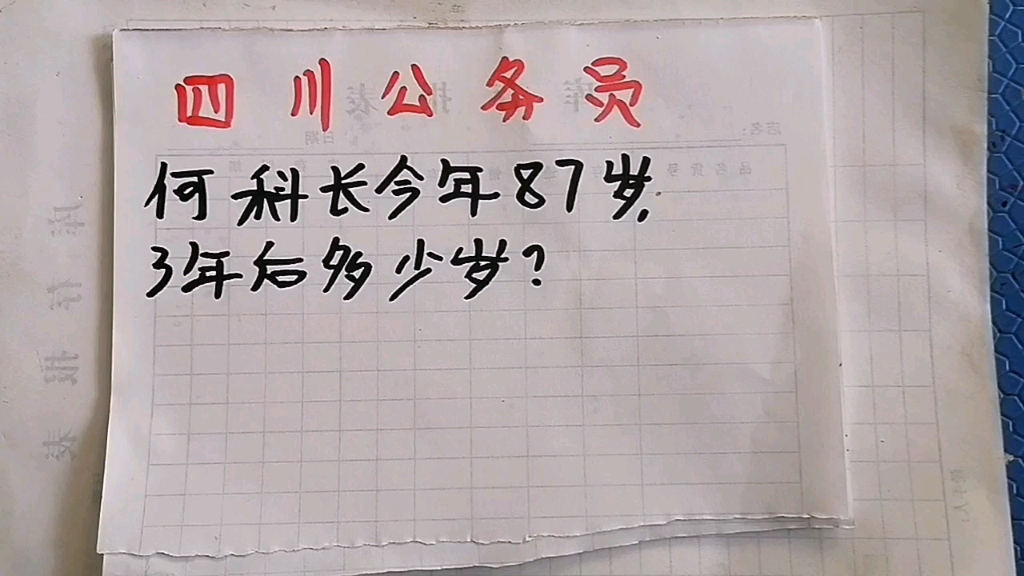 四川公务员
何科长今年87岁,
3年后多少岁?
库存报表